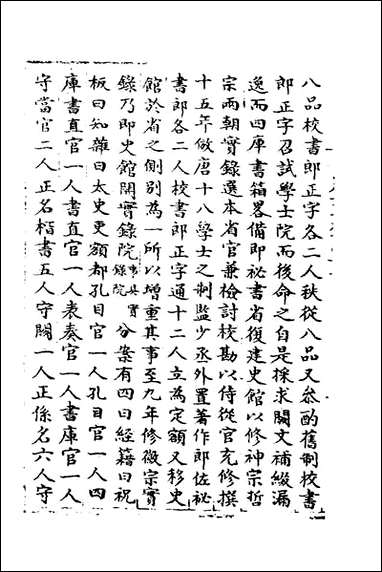 八品校書郎正字各二人秩從八品又叅酌舊制校書
郎正字召試學士院而後命之自是採求闕文補綴漏
逸而四庫書籍畧備即祕書省復建史館以修神宗哲
宗兩朝實錄選本省官兼檢討校勘以侍從官充修撰
十五年倣唐十八學士之制監少丞外置著作郎佐祕
書郎各二人校書郎正字通十二人立為定額又移史
館於省之側別為一所以增重其事至九年修徽宗實
錄乃即史館開實錄院
分案有四曰經籍曰祝
板曰知雜曰太史吏額都孔目官一人孔目官一人四
庫書直官一人書直官一人表奏官一人書庫官一人
守當官二人正名楷書五人守闕一人正係名六人守